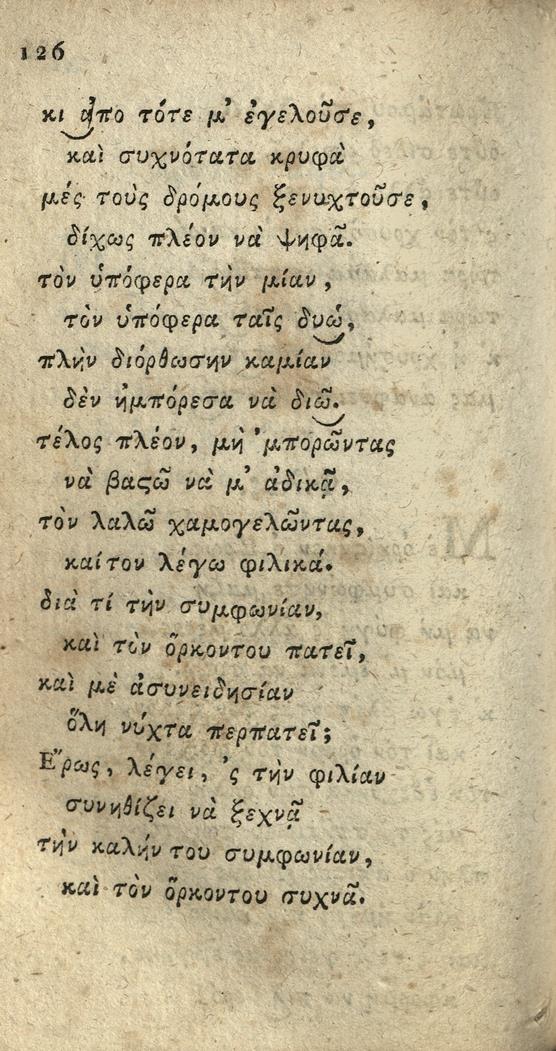 126
κι ἀπο τότε μ' ἐγελοῦσε,
καὶ συχνότατα κρυφὰ
μές τοὺς δρόμους ξενυχτοῦσε,
δίχως πλέον νὰ ψηφᾶ.
τὸν ὑπόφερα τὴν μίαν,
τὸν ὑπόφερα ταῖς δυώ,
πλὴν διόρθωσην καμίαν
δὲν ἠμπόρεσα νὰ διῶ.
τέλος πλέον, μὴ 'μπορῶντας
νὰ βαςῶ νὰ μ' ἀδικᾷ,
τὸν λαλῶ χαμογελῶντας,
καίτον λέγω φιλικά.
διὰ τί τὴν συμφωνίαν,
καὶ τὸν ὅρκοντου πατεῖ,
καὶ μὲ ἀσυνειδησίαν
ὅλη νύχτα περπατεῖ;
Ἔρως, λέγει, 'ς τὴν φιλίαν
συνηθίζει νὰ ξεχνᾷ
τὴν καλήν του συμφωνίαν,
καὶ τὸν ὅρκοντου συχνᾶ.